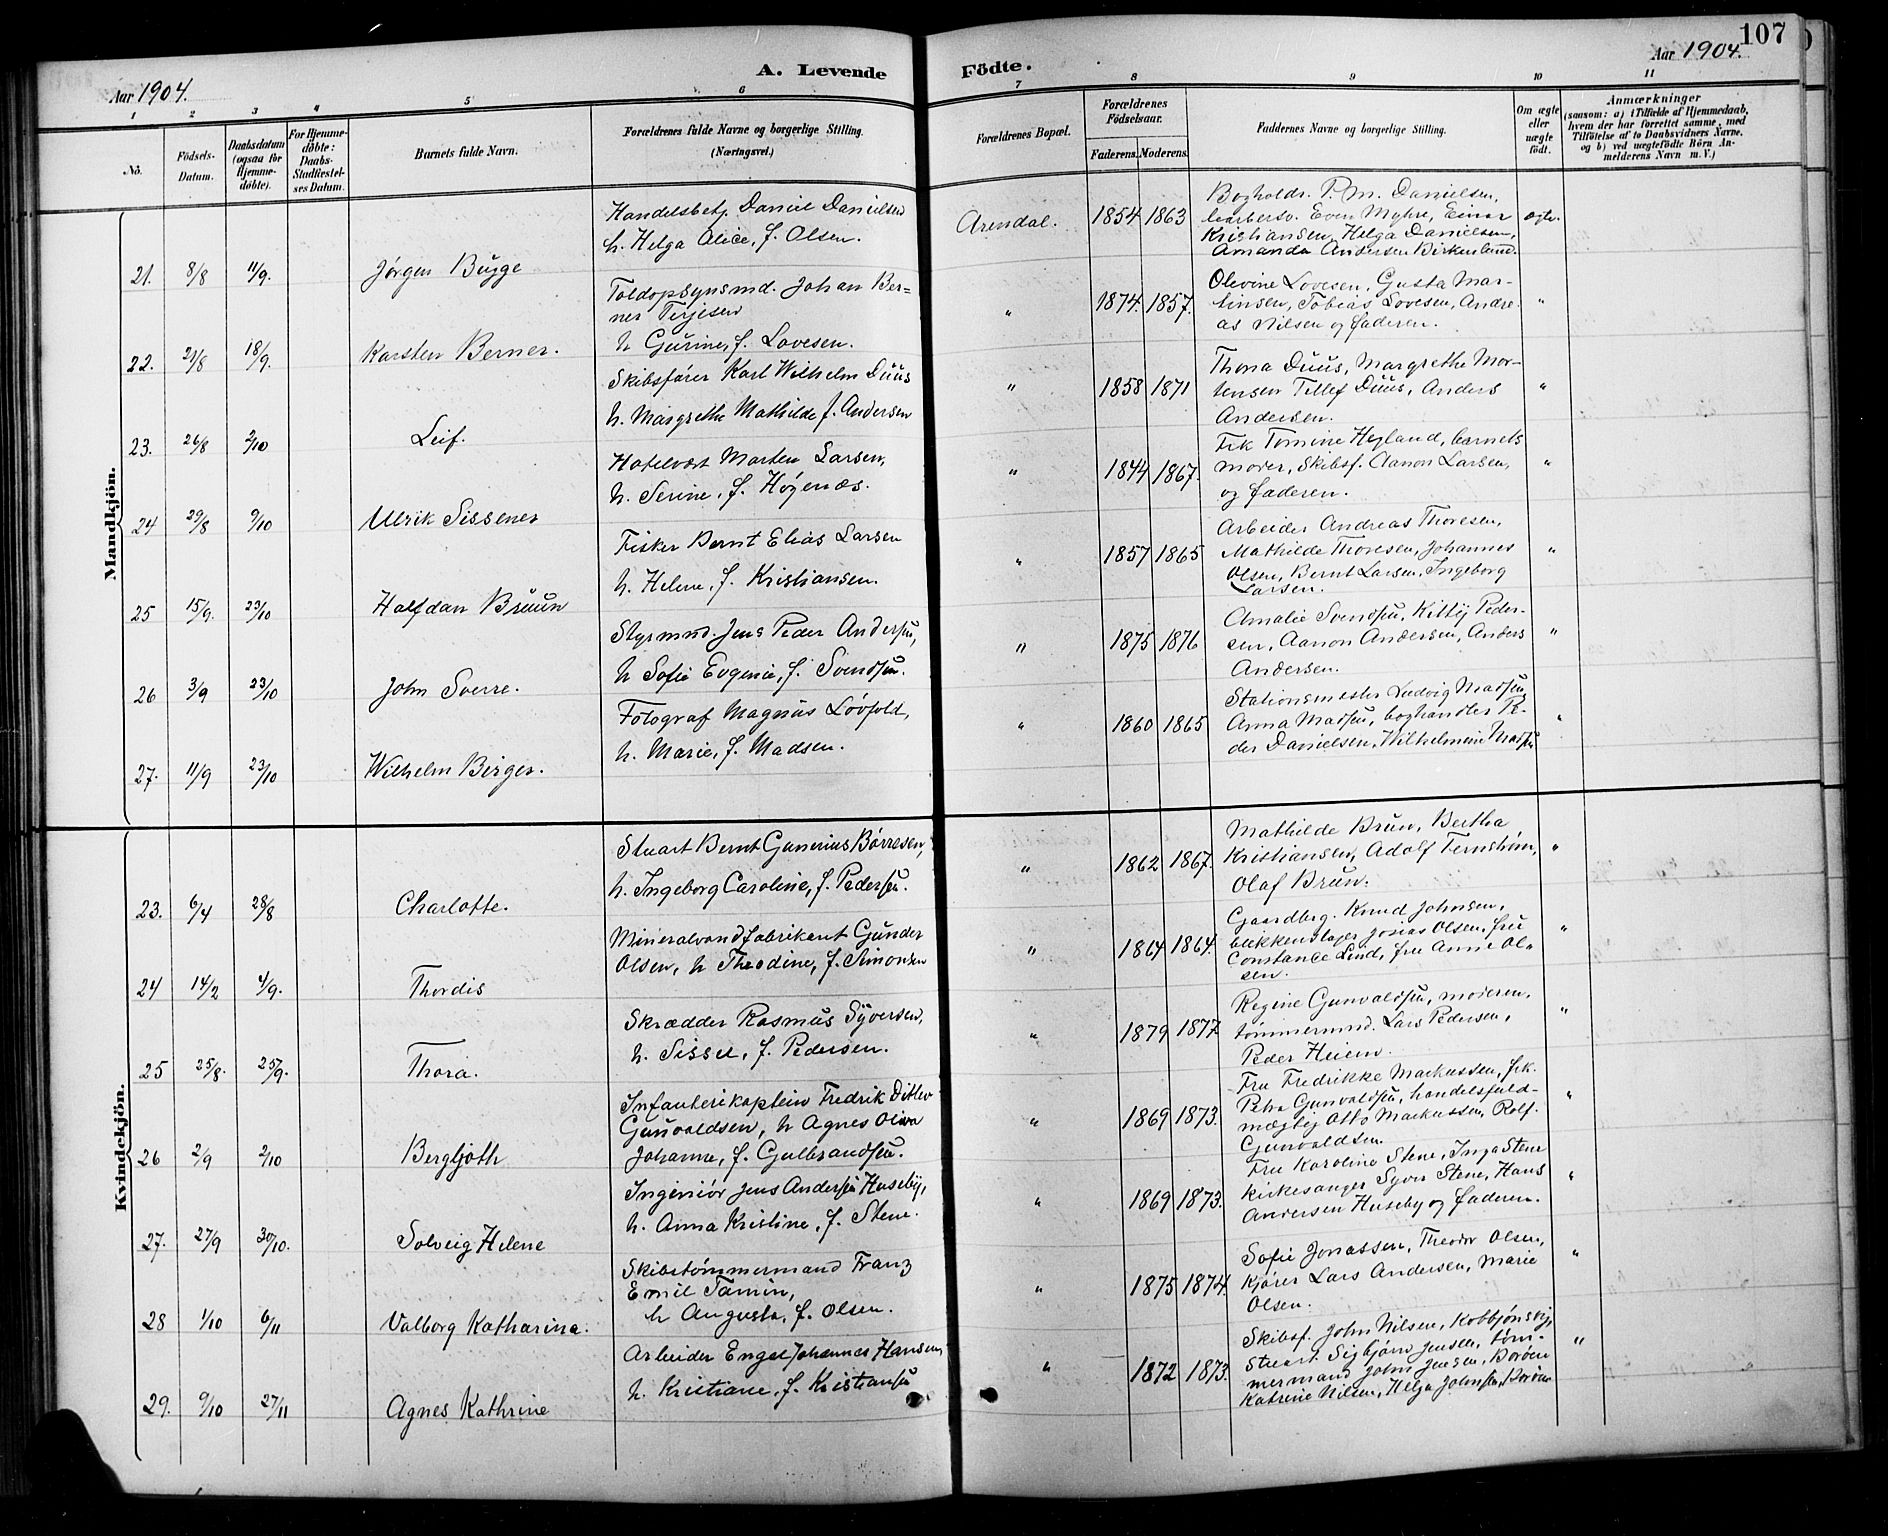 107
Aar 1904.
A. Levende Födte.
Aar 1904.
1 2 3 4 5 6 7 8 9 10 11
No.
Födsels-Datum.
Daabsdatum (ogsaa for Hjemmedöbte).
For Hjemmedöbte: Daabs-Stadfæstelses Datum.
Barnets fulde Navn.
Forældrenes fulde Navne og borgerlige Stilling. (Næringsvei.)
Forældrenes Bopæl.
Forældrenes Födselsaar.
Faderens. Moderens.
Faddernes Navne og borgerlige Stilling.
Om ægte eller uægte födt.
Anmærkninger
(saasom: a) i Tilfælde af Hjemmedaab, hvem der har forrettet samme, med Tilföielse af to Daabsvidners Navne, og b) ved uægtefödte Börn Anmelderens Navn m. V.)
Mandkjön.
21. 8/8 11/9. Jørgen Bugge
Handelsbetj. Daniel Danielsen
h. Helga Alice, f. Olsen.
Arendal. 1854 1863
Bogholdr. P. M. Danielsen,
Even Myhre, Einar
Kristiansen, Helga Danielsen,
Amanda Andersen Birkenlund.
ægte.
22. 21/8 18/9. Karsten Berner.
Toldopsynsmd. Johan Ber=
ner Terjesen
h Gurine, f. Lovesen.
" 1874. 1857.
Olivine Lovesen, Gusta Mar-
tinsen, Tobias Lovesen, Andre-
as Nilsen og faderen.
"
23. 26/8 2/10 Leif.
Skibsfører Karl Wilhelm Duus
h. Margrethe Mathilde f. Andersen
" 1858 1871
Thona Duus, Margrethe Mor-
tensen Tellef Duus, Anders
Andersen.
"
24 29/8 9/10 Ulrik Sissener
Hotelvært Morten Larsen,
h. Serine, f. Høgenæs.
" 1844 1867.
Frk Tomine Hegland, barnets
moder, Skibsf. Aanon Larsen,
og faderen.
"
25 15/9. 23/10 Halfdan Bruun
Fisker Bernt Elias Larsen
h. Helene, f. Kristiansen.
" 1857 1865
Arbeider Andreas Thoresen,
Mathilde Thoresen, Johannes
Olsen, Bernt Larsen, Ingeborg
Larsen.
"
26 3/9 23/10 John Sverre.
Styrmnd. Jens Peder Andersen,
h Sofie Evgenie, f. Svendsen.
" 1875 1876
Amalie Svendsen, Kitty Peder-
sen, Aanon Andersen, Anders
Andersen.
"
27. 11/9 23/10 Wilhelm Birger.
Fotograf Magnus Lövfold,
h. Marie, f. Madsen.
" 1860 1865
Stationsmester Ludvig Madsen,
Anna Madsen, boghandler Pe-
der Danielsen, Wilhelmine Madsen
"
Kvindekjön.
23. 6/4 28/8 Charlotte.
Stuart Bernt Gunerius Børresen,
h. Ingeborg Caroline, f. Pedersen.
" 1862 1867.
Mathilde Brun, Bertha
Kristiansen, Adolf Ternstrøm,
Olaf Brun.
"
24 14/2 4/9. Thordis
Mineralvandfabrikant Gunder
Olsen, h Theodine, f. Simonsen
" 1864 1864.
Gaardbrg. Knud Johnsen,
blikkenslager Josias Olsen, fru
Constance Lind, fru Anne Ol-
sen.
"
25 25/8. 25/9. Thora.
Skrædder Rasmus Syversen,
h. Sisser, f. Pedersen.
" 1879 1877
Regine Gunvaldsen, moderen,
tømmermnd. Lars Pedersen,
Peder Heien.
"
26 2/9 2/10 Bergljoth
Infanterikaptein Fredrik Ditlev
Gunvaldsen, h Agnes Oliva
Johanne, f. Gulbrandsen.
" 1869 1873.
Fru Fredrikke Markussen, frk.
Petra Gunvaldsen, handelsfuld-
mægtig Otto Markussen, Rolf
Gunvaldsen.
"
27. 27/9 30/10. Solveig Helene
Ingeniør Jens Andersen Huseby,
h. Anna Kristine, f. Stene.
" 1869 1873.
Fru Karoline Stene, Inga Stene
kirkesanger Syver Stene, Hans
Andersen Huseby og faderen.
"
28 1/10 6/11 Valborg Katharina.
Skibstømmermand Franz
Emil Tamin,
h Augusta, f. Olsen.
" 1875 1874.
Sofie Jonassen, Theodor Olsen,
Kjører Lars Andersen, Marie
Olsen.
"
29. 9/10 27/11 Agnes Kathrine
Arbeider Engel Johannes Hansen
h. Kristiane, f. Kristiansen
" 1872 1873.
Skibsf. John Nilsen, Kolbjønsvig,
Stuart Sigbjørn Jensen, tøm-
mermand John Jensen, Borøen
Katrine Nilsen, Helga Johnsen, Borøen
"